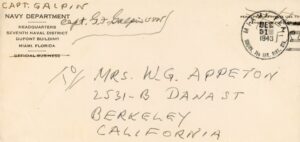 CAPT. GALPIN
NAVY DEPARTMENT
HEADQUARTERS
SEVENTH NAVAL DISTRICT
DUPONT BUILDING
MIAMI, FLORIDA
OFFICIAL BUSINESS
Capt. G.F. Galpin USN
MIAMI
DEC
31
1943
TO/ MRS. W.G. APPETON
2531-B DANA ST
BERKELEY
CALIFORNIA